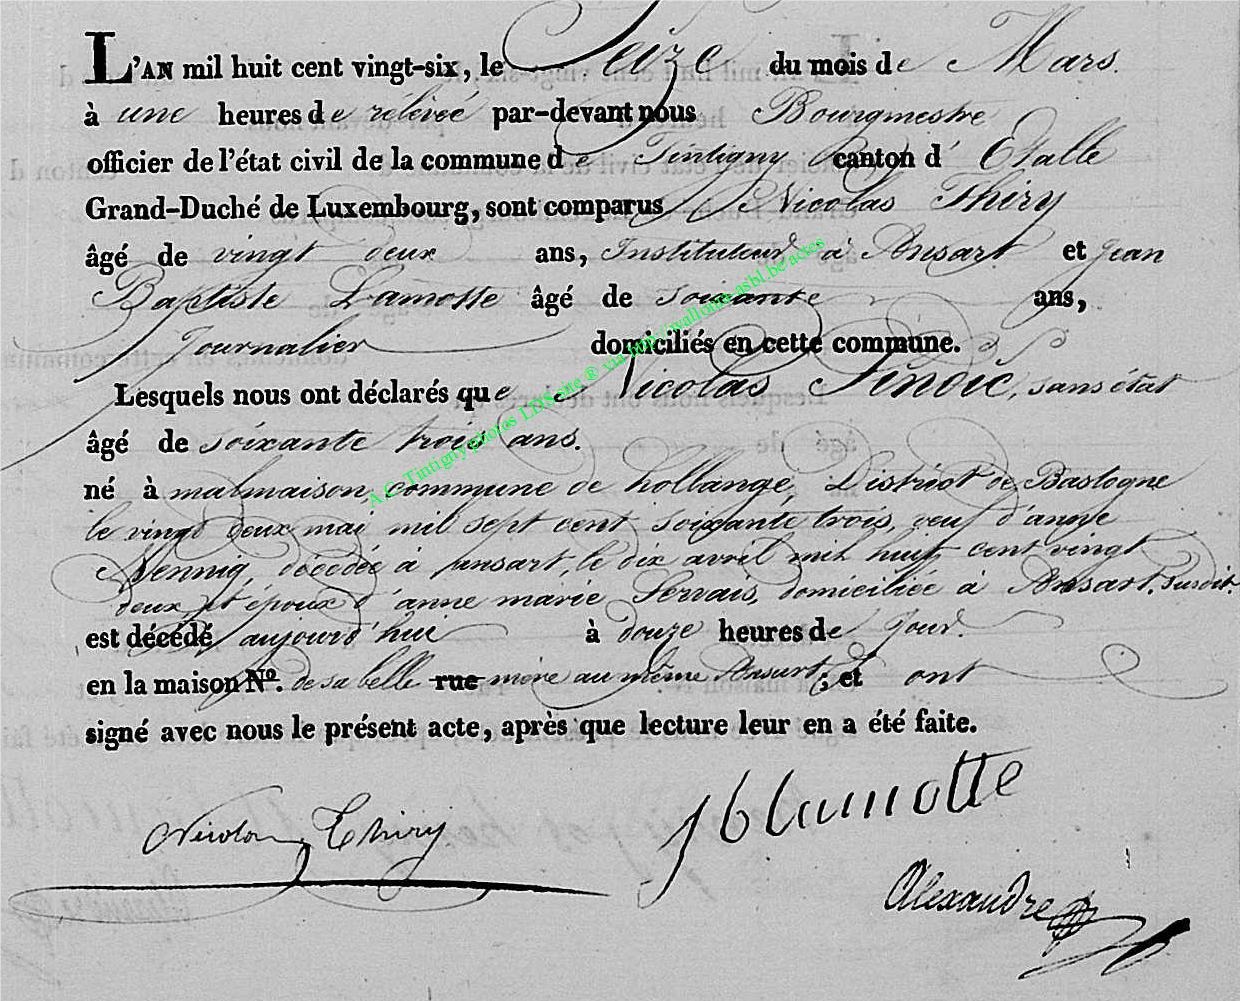 L'AN mil huit cent vingt-six, le Seize du mois de Mars.
à une heures de rélévéé par-devant nous Bourgmestre
officier de l'état civil de la commune de Tintigny canton d' Etalle
Grand-Duché de Luxembourg, sont comparus Nicolas Thiry
âgé de vingt deux ans, Instituteur à Ansart et Jean
Baptiste Lamotte âgé de soixante ans,
Journalier domiciliés en cette commune.
Lesquels nous ont déclarés que Nicolas Sindic, sans état
âgé de soixante trois ans.
né à malmaison, commune de hollange, District de Bastogne
le vingt deux mai mil sept cent soixante trois, veuf d'anne
Nennig, décédée à ansart, le dix avril mil huit cent vingt
deux et époux d'anne marie Servais, domiciliée à Ansart susdit.
est décédé aujourd'hui à douze heures de jour.
en la maison Nº. de sa belle rue mère au même Ansart ; et ont
signé avec nous le présent acte, après que lecture leur en a été faite.
A.C. Tintigny photos LDS site ® via http://wallonia-asbl.be/actes
Nicolas Thiry
J b lamotte
Alexandre